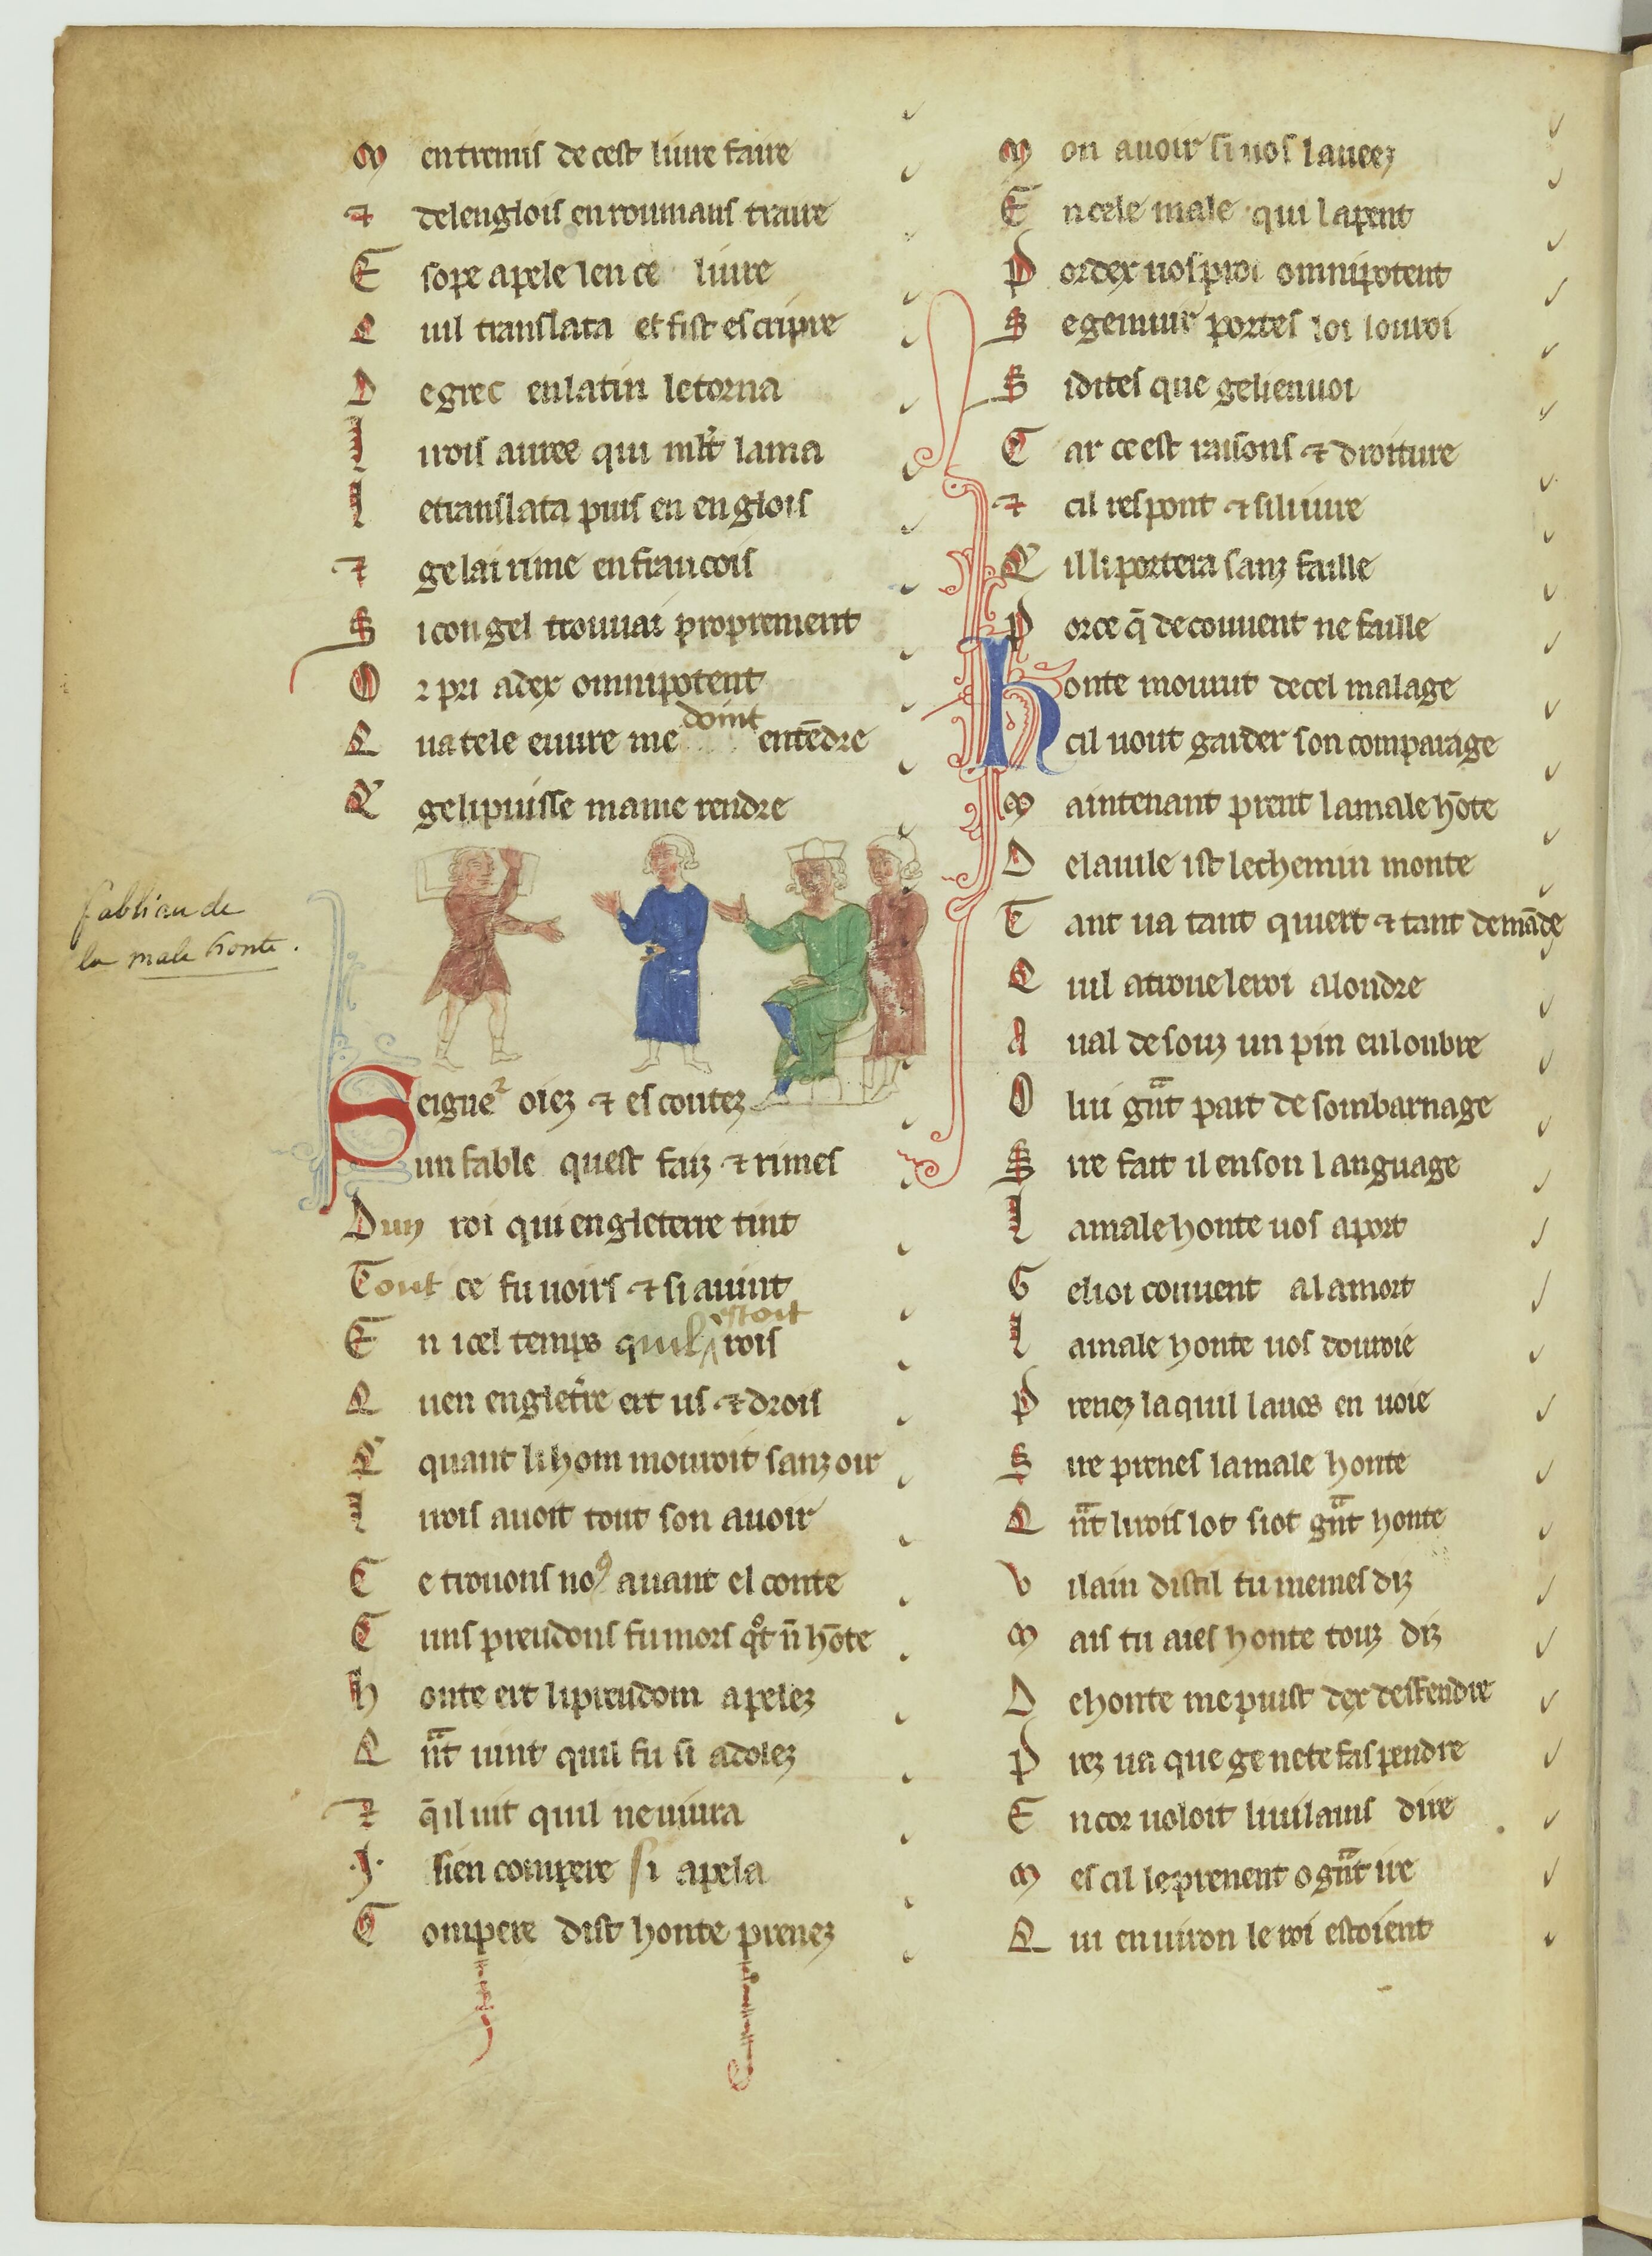 M entremis de cest livre faire
⁊ delenglois en roumans traire
E sope apele len ce livre
Q uil translata et fist escripre
D e grec en latin le torna
L i rois auree qui ml't lama
I l etranslata puis en englois
⁊ ge lai rime en francois
S i con gel trouvai proprement
O r pri a dex omnipotent
Q ua tele euure me doint entēdre
Q ge li puisse mame rendre
fabliau de
la male honte.
Seigne² oiez ⁊ escoutez
un fable quest faiz ⁊ rimes
Dun roi qui engleterre tint
Tout ce fu uoirs ⁊ si auint
E n icel temps quil estoit rois
Q uen englet're ert us ⁊ drois
Q quant li hom mouroit sanz oir
L i rois auoit tout son auoir
C e trouons noꝰ auant el conte
C uns preudons fu mors q°t ñ hōte
h onte ert li preudom apelez
Q nt uint quil fu si adolez
⁊ q̄ il uit quil ne uiura
.J. sien compere si apela
C ompere dist honte prenez
M on auoir si uos lauez
E n cele male qui la pent
P or dex uos proi omnipotent
S e ge muir portes loi lou roi
S i dites que ge li enuoi
C ar ce est raisons ⁊ droiture
⁊ cil respont ⁊ si li iure
Q il li portera sanz faille
P or ce q̄ de couuent ne faille
honte mourut de cel malage
cil uout garder son comparage
M aintenant prent la male hōte
D e la uile ist le chemin monte
T ant ua tant quiert ⁊ tant demāde
Q uil a troue le roi a londre
A ual desouz un pin en lonbre
O lui gñt part de son barnage
S ire fait il en son language
L a male honte uos aport
G e li oi couuent a la mort
L a male honte uos donroie
P renez la quil lauos en uoie
S ire prenes la male honte
Q nt li rois lot si ot gñt honte
V ilain dist il tu me mesdiz
M ais tu aies honte touz diz
D e honte me puist dex desfendre
P rez ua que ge ne te fas pendre
E ncor uoloit li uilains dire
M es cil le prenent o gñt ire
Q ui enuiron le roi estoient